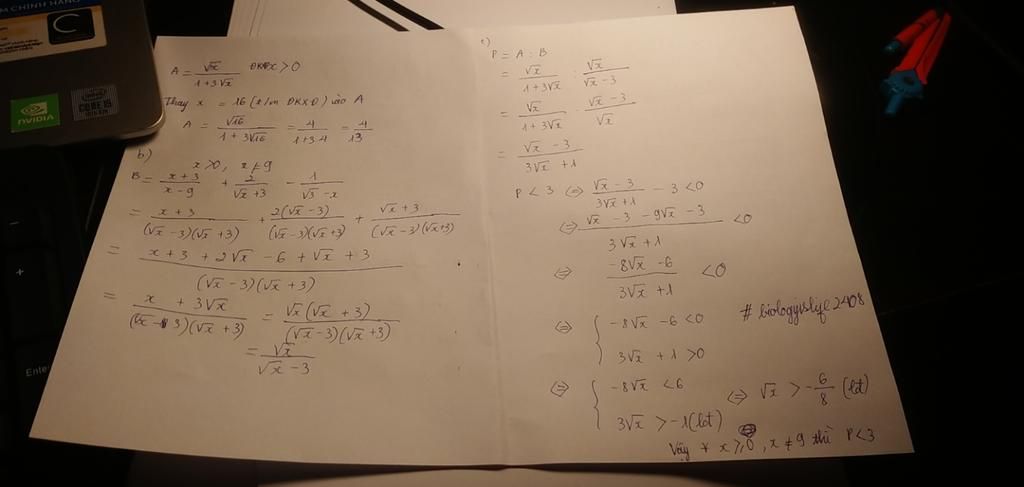 NVIDIA
CORE i5
Enter
A = √x / (1+3√x) ĐKXĐ x>0
Thay x = 16 (t/m ĐKXĐ) vào A
A = √16 / (1+3√16) = 4 / (1+3·4) = 4/13
b)
x>0, x≠9
B = (x+3)/(x-9) + 2/(√x+3) - 1/(√3-x)
= (x+3)/((√x-3)(√x+3)) + 2(√x-3)/((√x-3)(√x+3)) + (√x+3)/((√x-3)(√x+3))
= (x+3+2√x-6+√x+3)/((√x-3)(√x+3))
= (x+3√x)/((√x-3)(√x+3)) = √x(√x+3)/((√x-3)(√x+3))
= √x/(√x-3)
c)
P = A : B
= √x/(1+3√x) : √x/(√x-3)
= √x/(1+3√x) · (√x-3)/√x
= (√x-3)/(3√x+1)
P < 3 ⇔ (√x-3)/(3√x+1) - 3 <0
⇔ (√x-3-9√x-3)/(3√x+1) <0
⇔ (-8√x-6)/(3√x+1) <0
# biologyislife2408
⇔ { -8√x-6 <0
3√x+1 >0
⇔ { -8√x <6 ⇔ √x > -6/8 (lđt)
3√x > -1 (lđt)
Vậy ∀ x ≥ 0, x ≠ 9 thì P<3